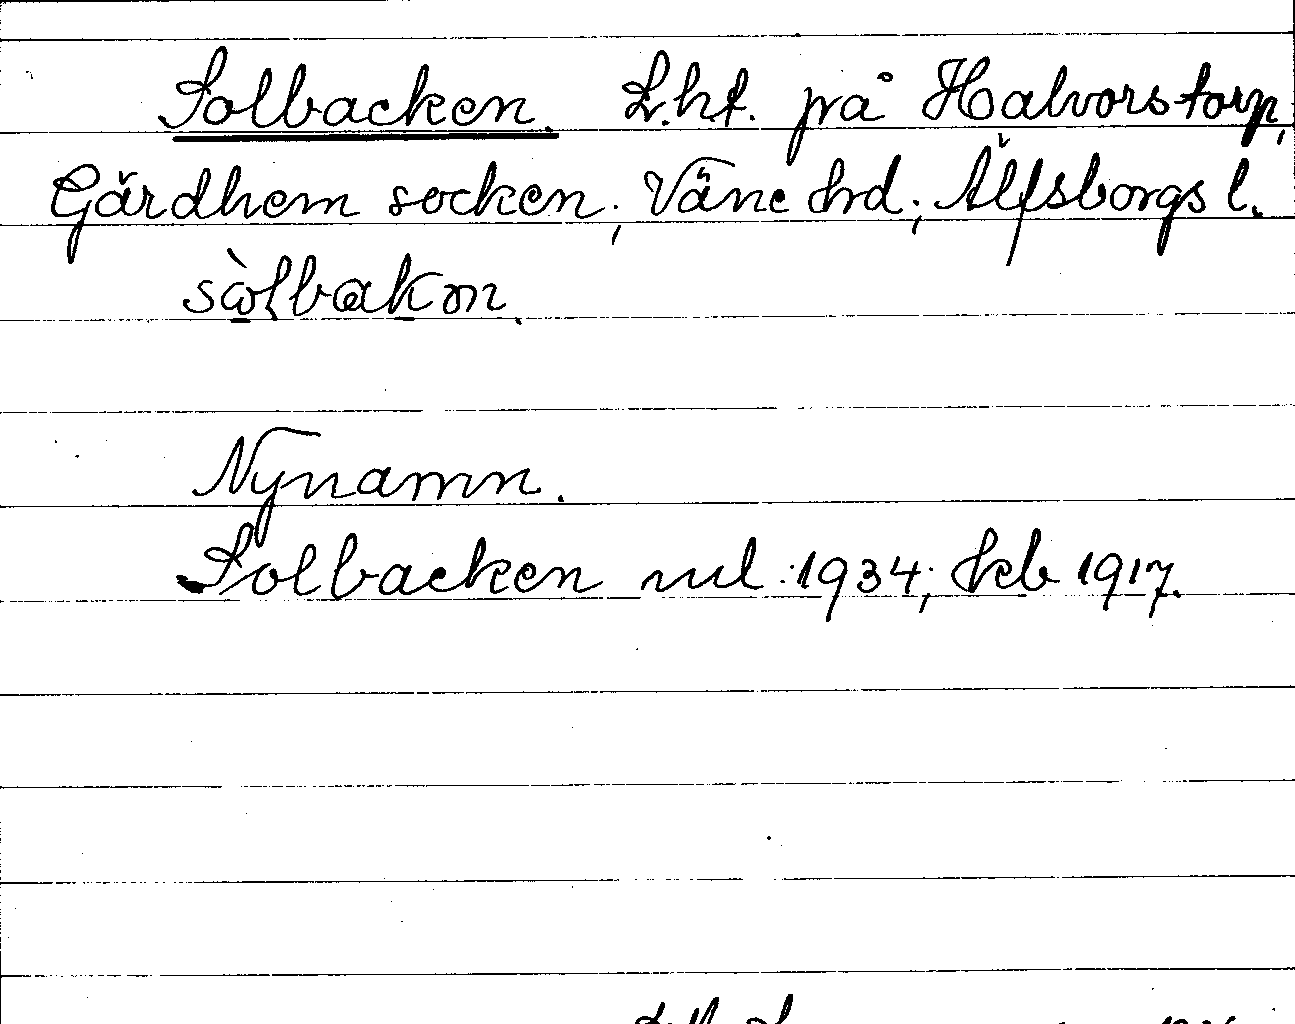 Solbacken. L.ht. på Halvorstorp,
Gärdhem socken, Väne hd; Älfsborgs l.
sòlbakɷn.
Nynamn.
Solbacken ml 1934; hfb 1917.